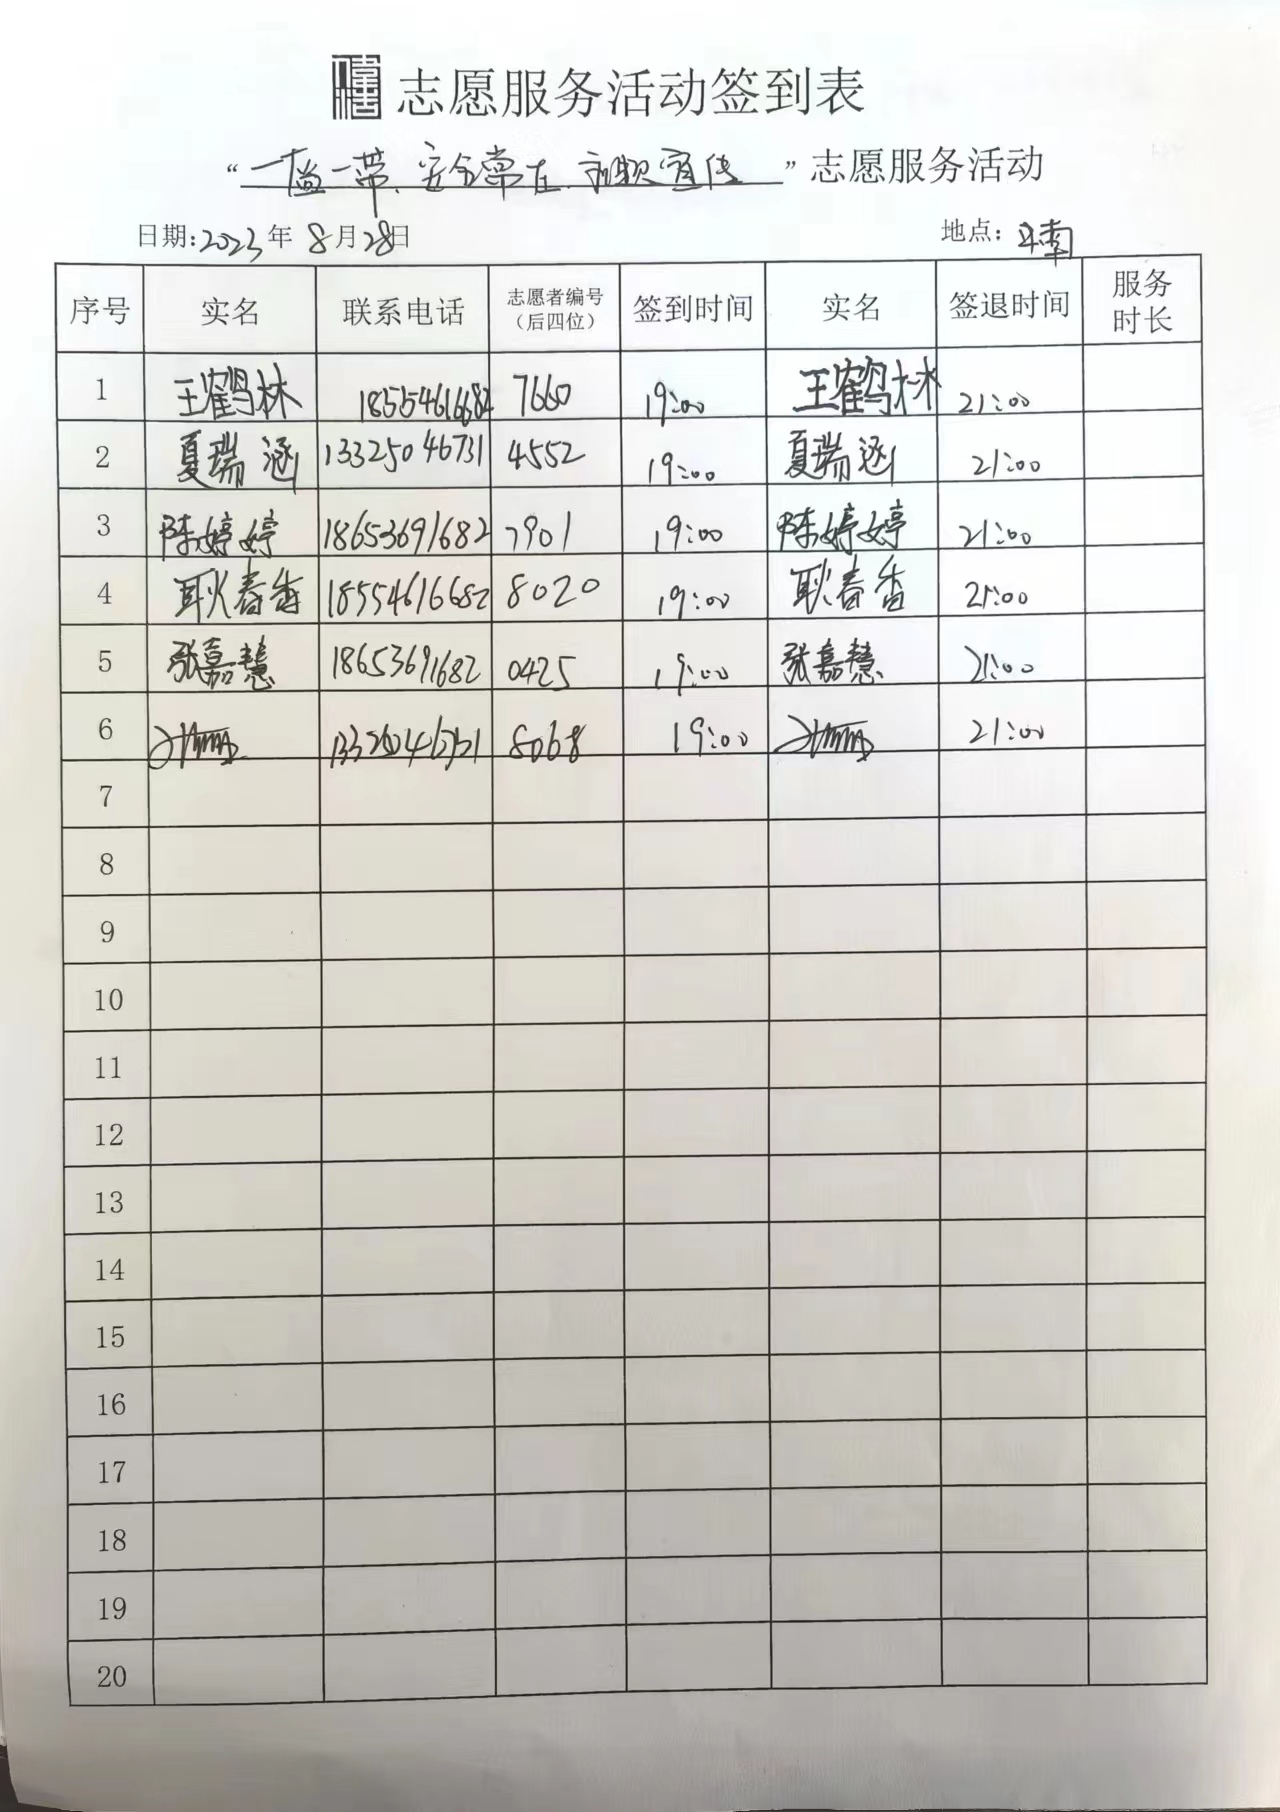 志愿服务活动签到表
“一盔一带、安全常在 宣传”志愿服务活动
日期:2023年 8月28日 地点:
序号 实名 联系电话 志愿者编号(后四位) 签到时间 实名 签退时间 服务时长
1 王鹤林 18554616682 7660 19:00 王鹤林 21:00
2 夏瑞涵 13325046731 4552 19:00 夏瑞涵 21:00
3 陈婷婷 18653691682 7901 19:00 陈婷婷 21:00
4 耿春香 18554616682 8020 19:00 耿春香 21:00
5 张嘉慧 18653691682 0425 19:00 张嘉慧 21:00
6 8068 19:00 21:00
7
8
9
10
11
12
13
14
15
16
17
18
19
20